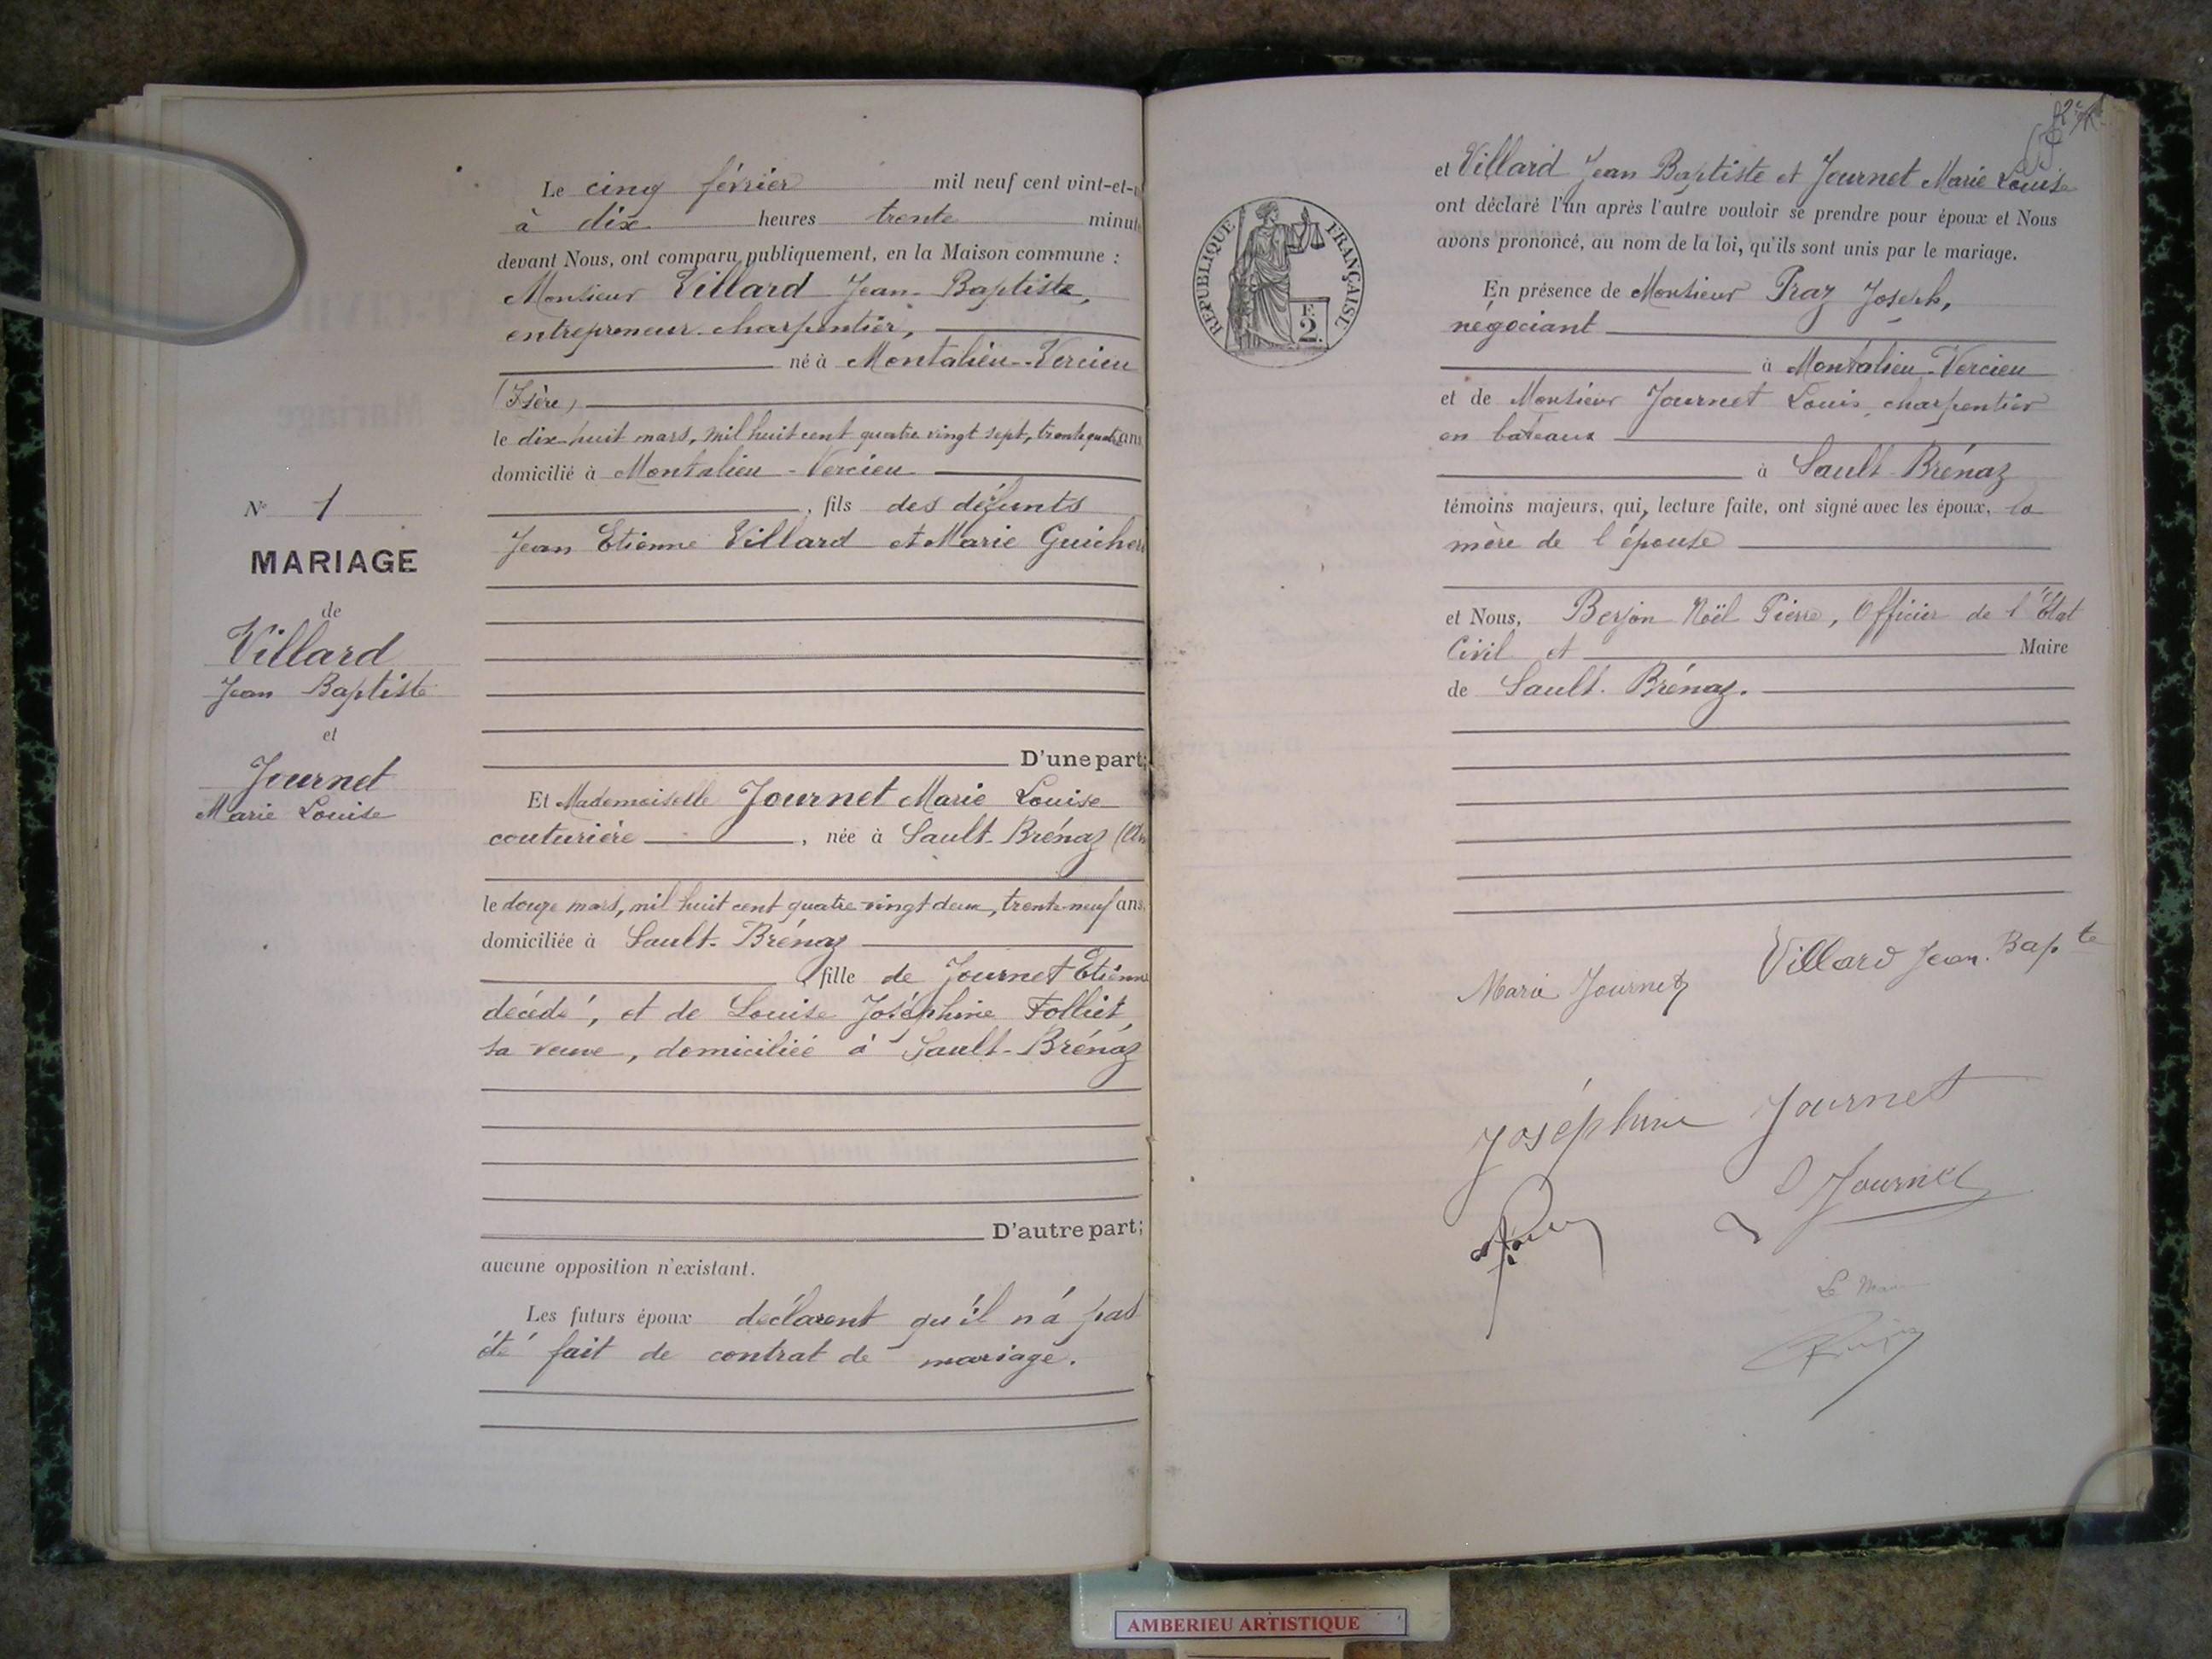 Le cinq février mil neuf cent vint-et-u
à dix heures trente minut
devant Nous, ont comparu publiquement, en la Maison commune :
Monsieur Villard Jean-Baptiste,
entrepreneur-charpentier,
né à Montalieu-Vercieu
(Isère)
le dix huit mars, mil huit cent quatre vingt sept, trente quatre ans
domicilié à Montalieu-Vercieu
, fils des défunts
Jean Etienne Villard et Marie Guicher
D'une part;
Et Mademoiselle Journet Marie Louise
couturière, née à Sault-Brénaz (Ain
le douze mars, mil huit cent quatre-vingt deux, trente-neuf ans,
domiciliée à Sault-Brénaz
, fille de Journet Etienne
décédé, et de Louise Joséphine Folliet
sa veuve, domiciliée à Sault-Brénaz
D'autre part;
aucune opposition n'existant.
Les futurs époux déclarent qu'il n'a pas
été fait de contrat de mariage.
N° 1
MARIAGE
de
Villard
Jean Baptiste
et
Journet
Marie Louise
et Villard Jean Baptiste et Journet Marie Louise
ont déclaré l'un après l'autre vouloir se prendre pour époux et Nous
avons prononcé, au nom de la loi, qu'ils sont unis par le mariage.
En présence de Monsieur Praz Joseph,
négociant
à Montalieu-Vercieu
et de Monsieur Journet Louis, charpentier
en bateaux
à Sault-Brénaz
témoins majeurs, qui, lecture faite, ont signé avec les époux, la
mère de l'épouse
et Nous, Berjon Noël Pierre, Officier de l'Etat
Civil et Maire
de Sault-Brénaz.
RÉPUBLIQUE FRANÇAISE
F.
2.
Villard Jean Bapte
Marie Journet
Joséphine Journet
Journet
Le Maire
AMBERIEU ARTISTIQUE